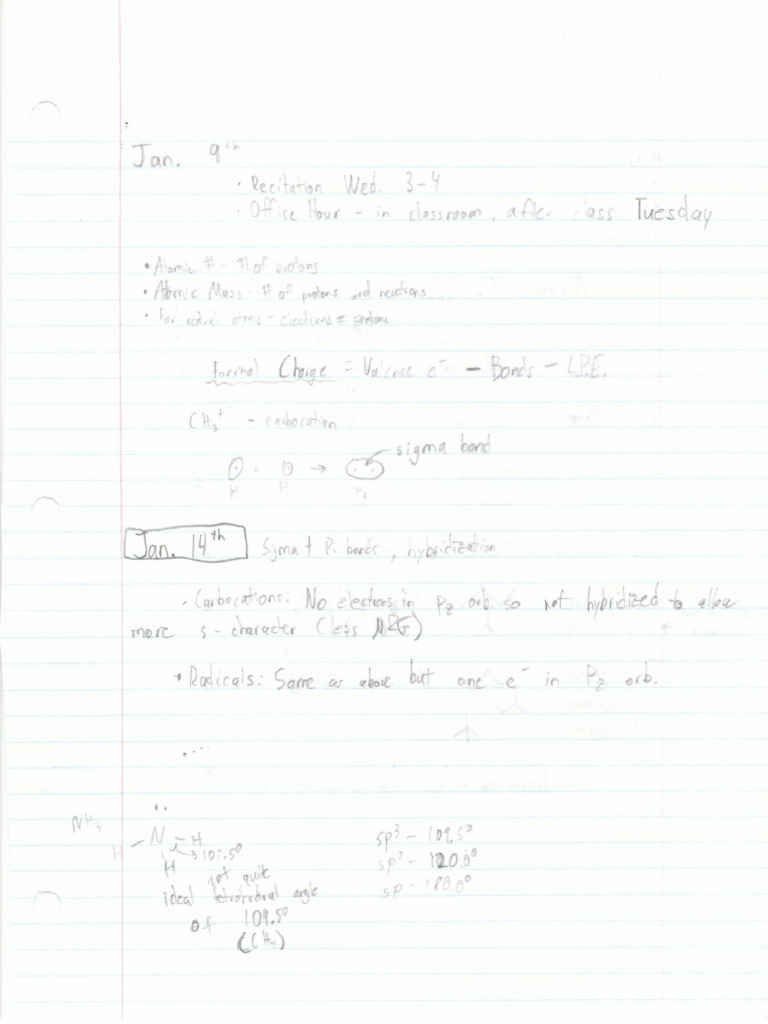 Jan. 9th
· Recitation Wed. 3-4
· Office Hour - in classroom, after class Tuesday
• Atomic # - # of protons
• Atomic Mass - # of protons and neutrons
• For netral atoms - electrons = protons
Formal Charge = Valence e⁻ - Bonds - L.P.E.
CH₃⁺ - carbocation
sigma bond
H · H → H₂
Jan. 14th Sigma + Pi bonds, hybridization
· Carbocations: No electrons in Pz orb. so not hybridized to allow
more s-character (less NRG)
• Radicals: Same as above but one e⁻ in Pz orb.
NH₃
H - N - H
H → 107.5°
not quite
ideal tetrahedral angle
of 109.5°
(CH₄)
sp³ - 109.5°
sp² - 120.0°
sp - 180.0°